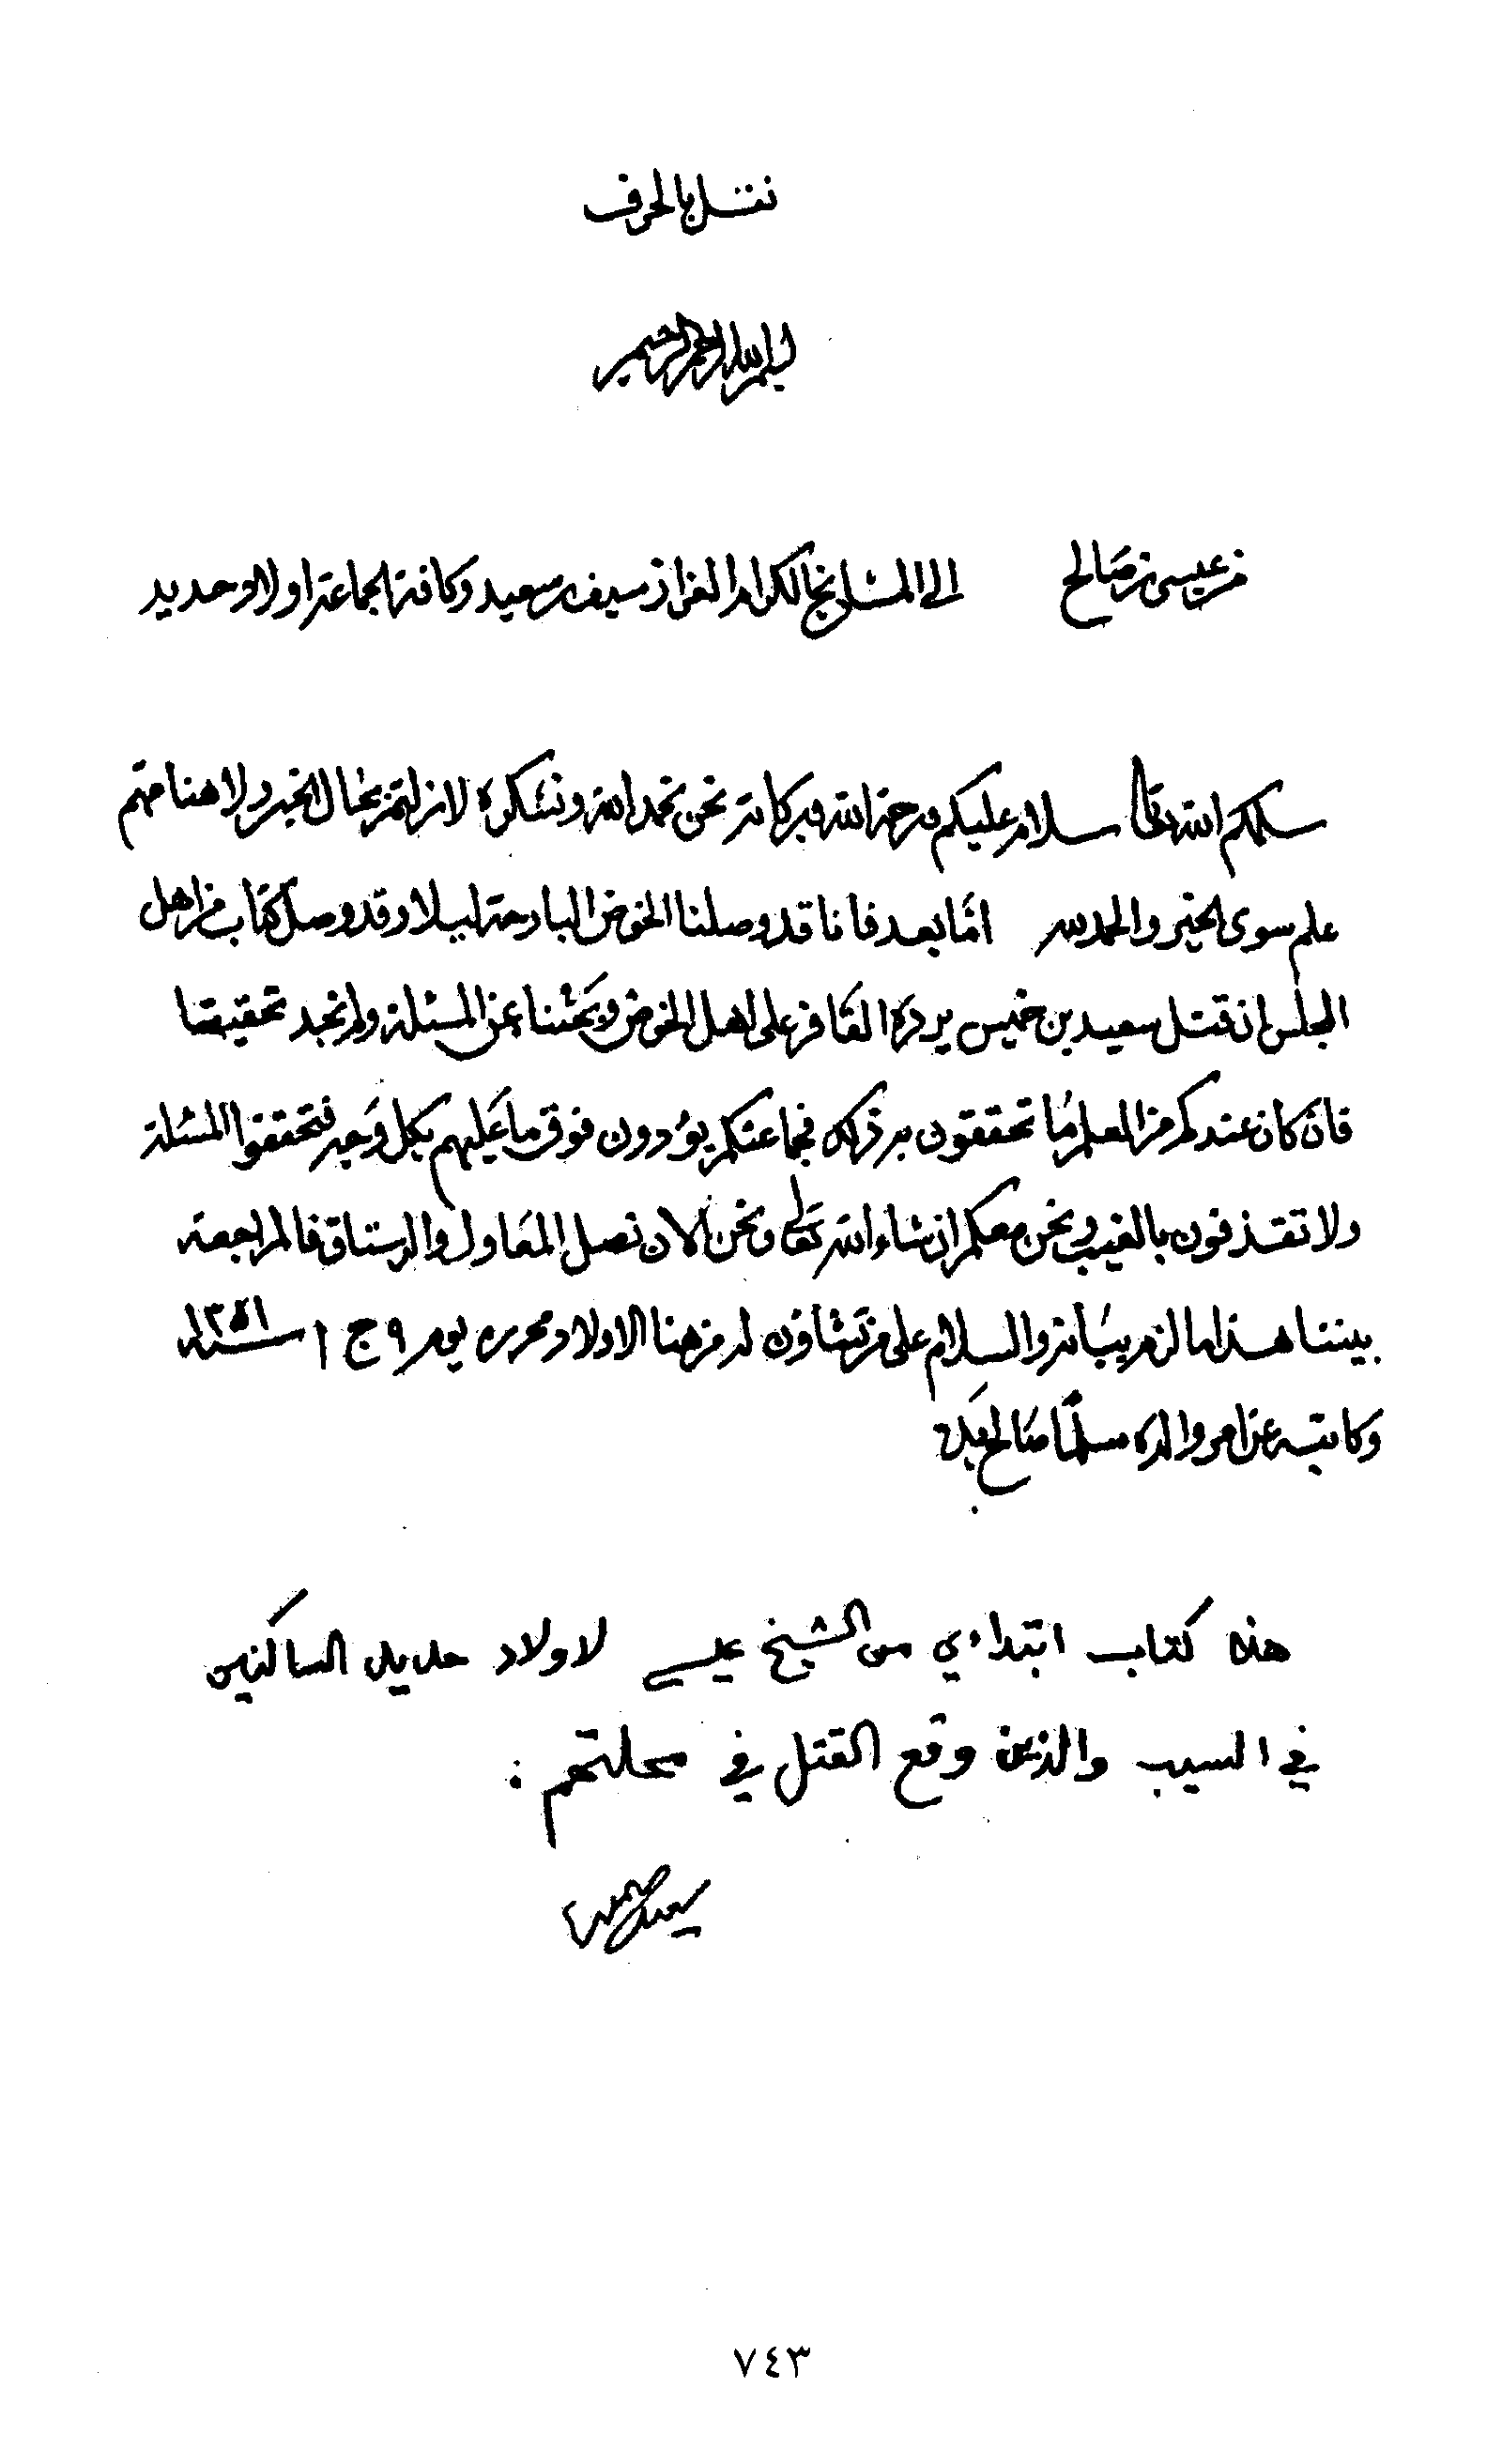 نقل بالحرف
بسم الله الرحمن الرحيم
من عيسى بن صالح الى المشايخ الكرام العزاز سيف بن سعيد وكافة الجماعة اولاد حديد
سلمكم الله تعالى سلام عليكم ورحمة الله وبركاته نحن نحمد الله ونشكره لا زلتم بحال الخير ولا هنا مهم
علم سوى الخير والحمد لله امّا بعد فانا قد وصلنا الخوض البارحة ليلا وقد وصل كتاب من اهل
المجلس ان قتل سعيد بن خميس يرده على اهل الخوض وبحثنا عن المسئلة ولم نجد تحقيقا
فان كان عندكم من العلم ما تحققون به ذلك فجماعتكم يؤدون فوق ما عليهم بكل وجه فتحققوا المسئلة
ولا تقذفون بالغيب ونحن معكم ان شاء الله تعالى ونحن الان نصل المعاول والرستاق فالمراجعة
بيننا هذا ما لزم بيانه والسلام على من تشاؤن له من هنا الاولاد محرره يوم ٩ ج ١ سنة ١٣٥١
وكاتبه عن امر والده مسلما صالح بيده
هذه كتاب ابتداءي من الشيخ عيسى لاولاد حديد الساكنين
في السيب والذين وقع القتل في محلتهم :
٧٤٣